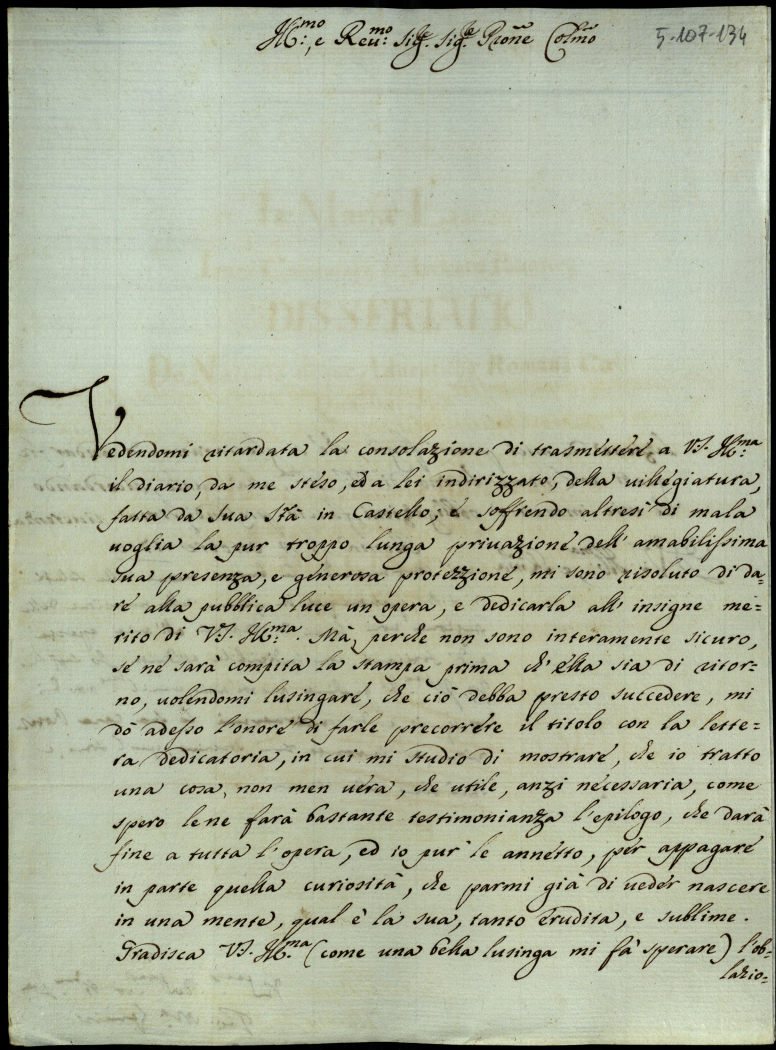 Ill:mo, e Reu:mo Sig.re Sig.re Prõne Colmõ
5-107-134
Vedendomi ritardata la consolazione di trasmettere a VS. Ill:ma
il diario, da me steso, ed a lei indirizzato, della villegiatura,
fatta da Sua Stà in Castello; e soffrendo altresì di mala
uoglia la pur troppo lunga priuazione dell' amabilissima
sua presenza, e generosa protezzione, mi sono risoluto di da=
re alla pubblica luce un opera, e dedicarla all' insigne me=
rito di VS. Ill:ma. Mà, perche non sono interamente sicuro,
se ne sarà compita la stampa prima ch' ella sia di ritor=
no, uolendomi lusingare, che ciò debba presto succedere, mi
dò adesso l'onore di farle precorrere il titolo con la lette=
ra dedicatoria, in cui mi studio di mostrare, che io tratto
una cosa, non men uera, che utile, anzi necessaria, come
spero le ne farà bastante testimonianza l'epilogo, che darà
fine a tutta l'opera, ed io pur le annetto, per appagare
in parte quella curiosità, che parmi già di ueder nascere
in una mente, qual è la sua, tanto erudita, e sublime.
Gradisca VS. Ill:ma (come una bella lusinga mi fà sperare) l'ob=
lazio=